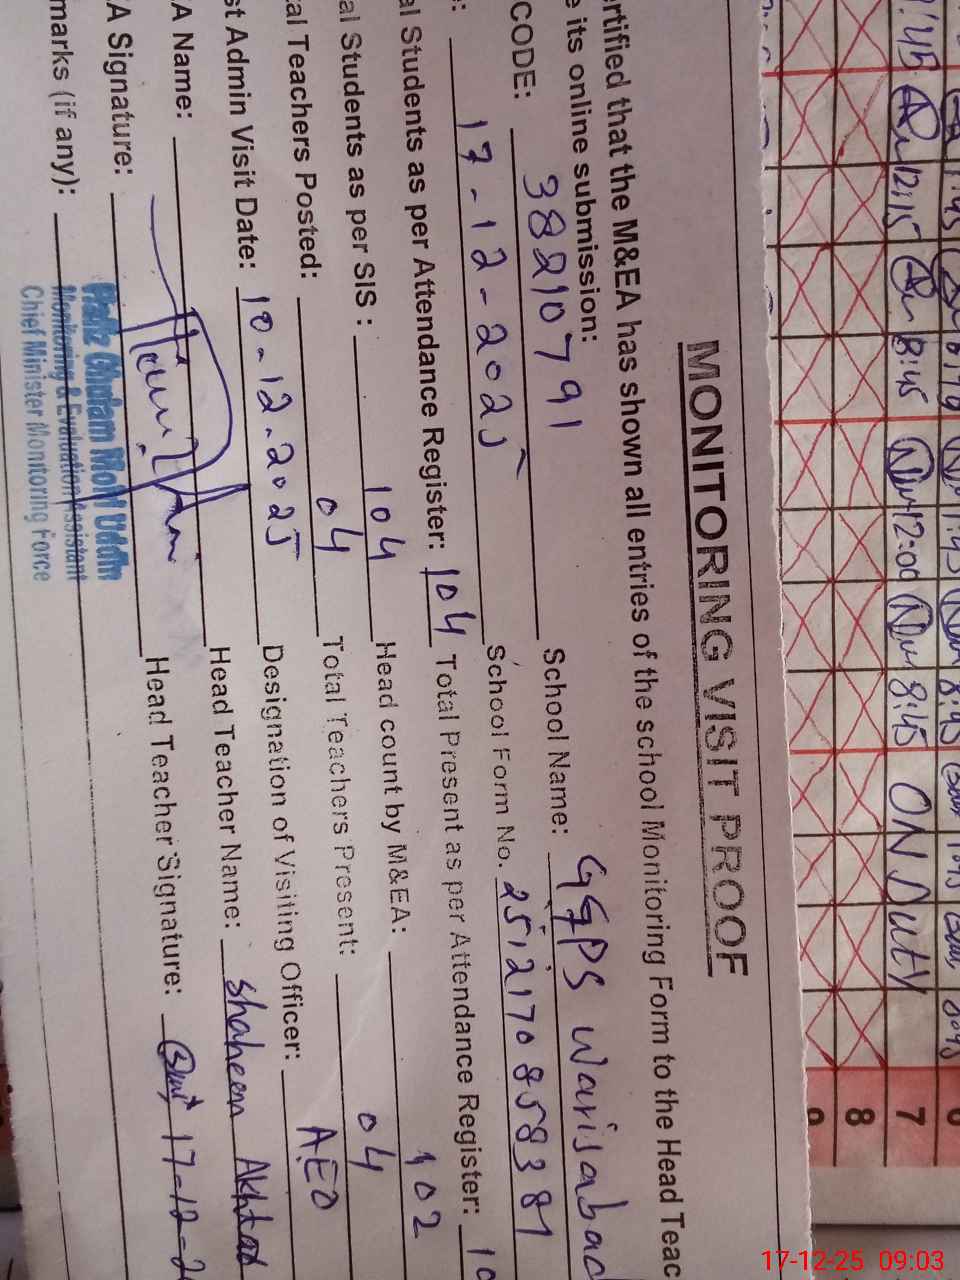 MONITORING VISIT PROOF
ertified that the M&EA has shown all entries of the school Monitoring Form to the Head Teac
e its online submission:
CODE: 38210791 School Name: GGPS Warisabad
e: 17-12-2025 School Form No. 2512170858381
al Students as per Attendance Register: 104 Total Present as per Attendance Register: 10
al Students as per SIS: 104 Head count by M&EA: 102
tal Teachers Posted: 04 Total Teachers Present: 04
st Admin Visit Date: 10-12-2025 Designation of Visiting Officer: AEO
A Name: Head Teacher Name: Shaheen Akhtar
A Signature: Head Teacher Signature: 17-12-2
marks (if any):
Hafiz Ghulam Mohi Uddin
Monitoring & Evaluation Assistant
Chief Minister Monitoring Force
7 12:15 8:45 12:00 8:45 ON DUTY
8
9
17-12-25 09:03